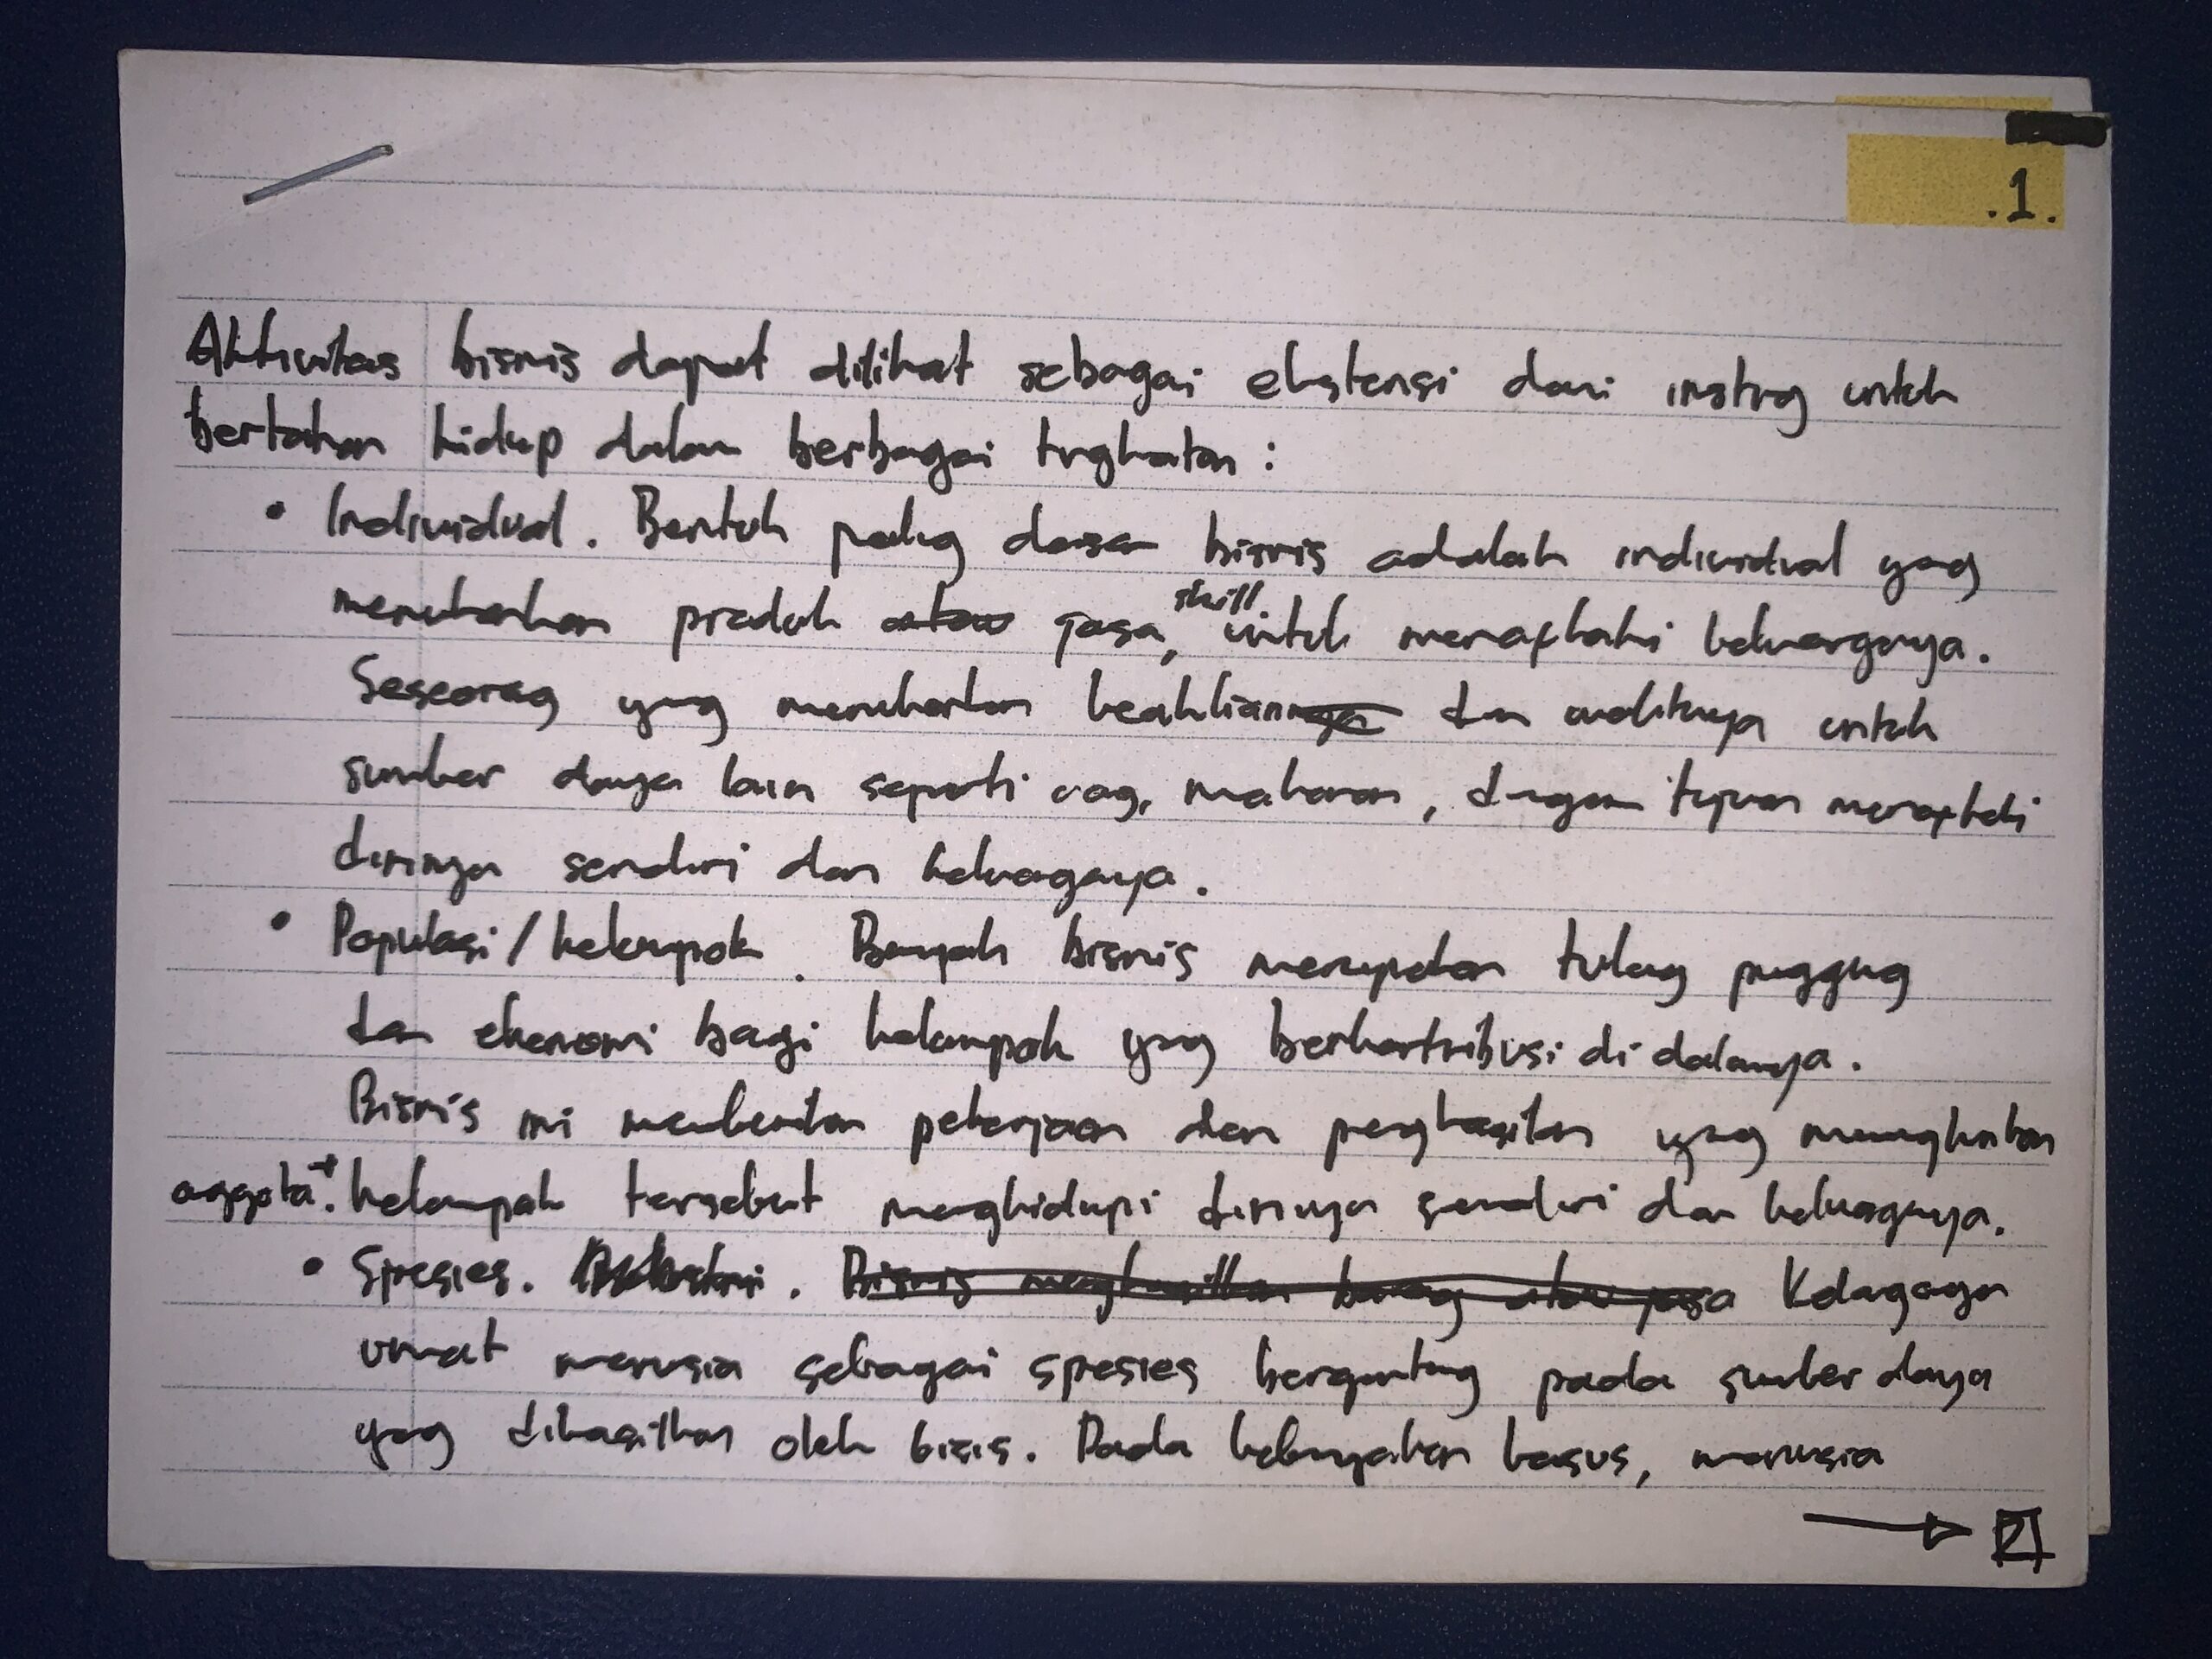 .1.
Aktivitas bisnis dapat dilihat sebagai ekstensi dari insting untuk
bertahan hidup dalam berbagai tingkatan :
• Individual. Bentuk paling dasar bisnis adalah individual yang
menukarkan produk atau jasa, skill. untuk menafkahi keluarganya.
Seseorang yang menukarkan keahliannya dan waktunya untuk
sumber daya lain seperti uang, makanan, dengan tujuan menafkahi
dirinya sendiri dan keluarganya.
• Populasi / kelompok. Banyak bisnis merupakan tulang punggung
dan ekonomi bagi kelompok yang berkontribusi di dalamnya.
Bisnis ini memberikan pekerjaan dan penghasilan yang memungkinkan
anggota kelompok tersebut menghidupi dirinya sendiri dan keluarganya.
• Spesies. Bisnis menghasilkan barang atau jasa Kelangsungan
umat manusia sebagai spesies bergantung pada sumber daya
yang dihasilkan oleh bisnis. Pada kebanyakan kasus, manusia
→ 2